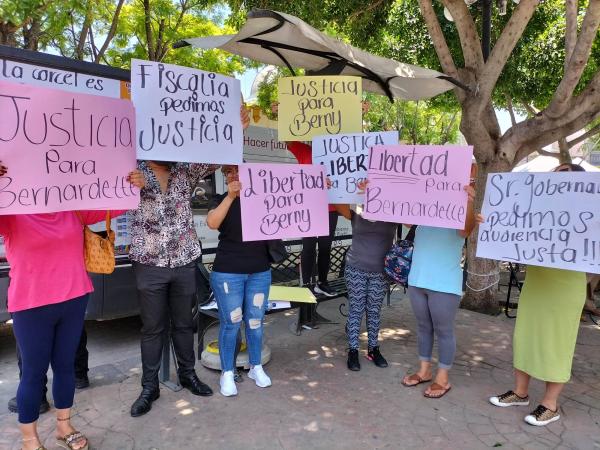 la carcel es
Justicia
Para
Bernardette
Fiscalia
pedimos
Justicia
Justicia
para
Berny
Hacer futuro
Justicia
Liber
Libertad
para
Berny
Libertad
para
Bernardette
Sr. goberna
pedimos
audiencia
Justa!!!